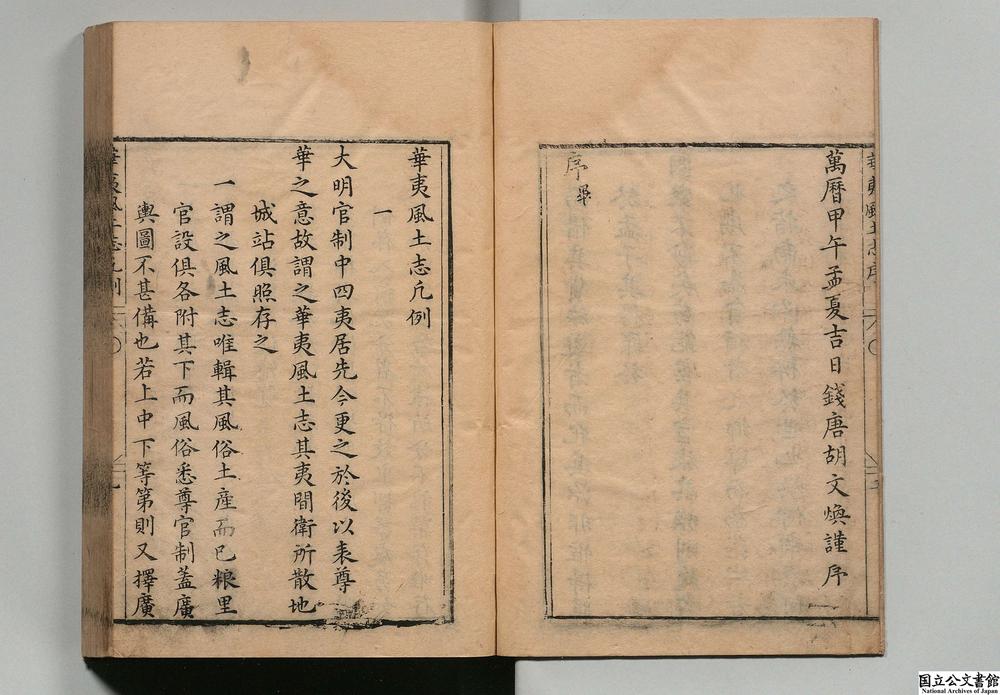 萬曆甲午孟夏吉日錢唐胡文煥謹序
序畢
華夷風土志凡例
一
大明官制中四夷居先今更之於後以表尊
華之意故謂之華夷風土志其夷間衛所散地
城站俱照存之
一謂之風土志唯輯其風俗土産而已粮里
官設俱各附其下而風俗悉尊官制蓋廣
輿圖不甚備也若上中下等第則又擇廣
国立公文書館
National Archives of Japan